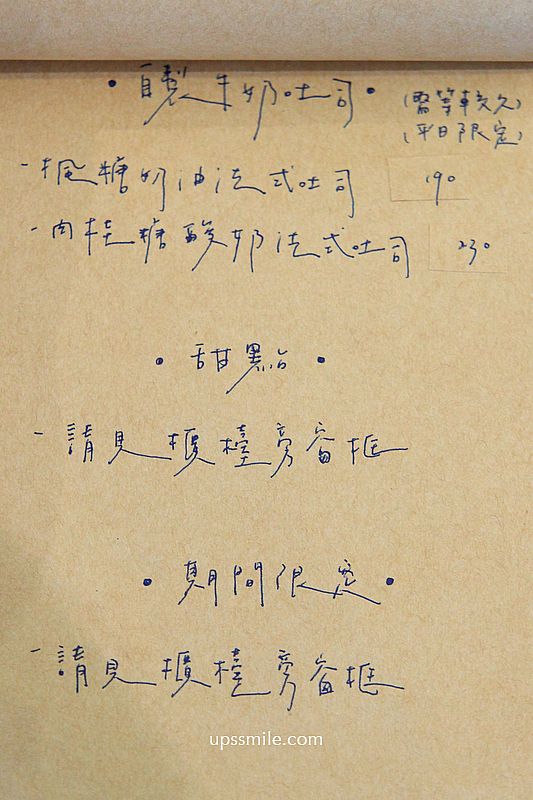 •自製牛奶吐司•
(需等較久)
(平日限定)
-楓糖奶油法式吐司 190
-肉桂糖酸奶法式吐司 230
•甜點•
-請見櫃檯旁窗框
•期間限定•
-請見櫃檯旁窗框
upssmile.com